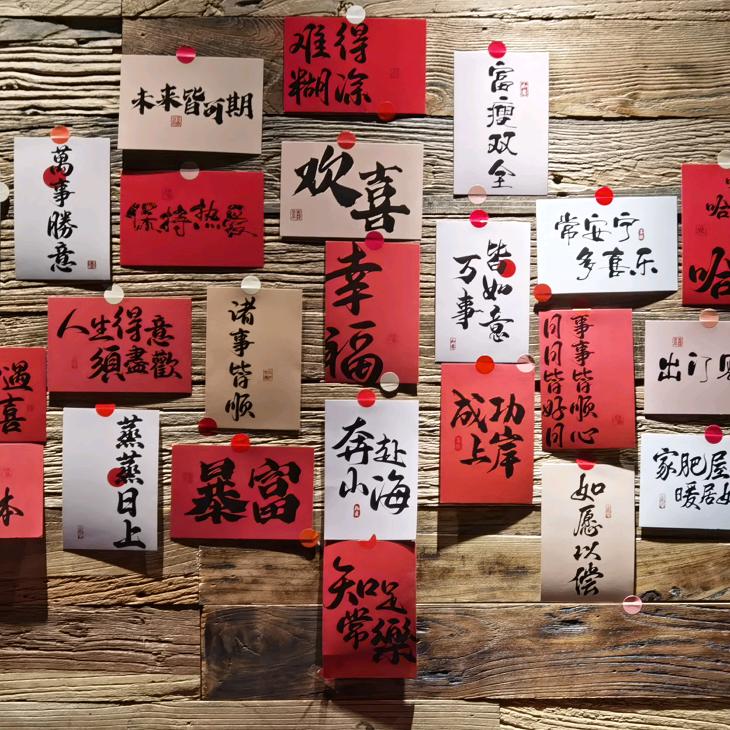 难得
糊涂
未来皆可期
富瘦双全
萬事勝意
保持热爱
欢喜
常安宁
多喜乐
皆如意
万事
幸福
人生得意
須盡歡
诸事皆顺
事事皆顺心
日日皆好日
出门见
遇
喜
成功
上岸
奔赴
山海
蒸蒸日上
暴富
家肥屋
暖居
如愿以偿
本
知足
常樂